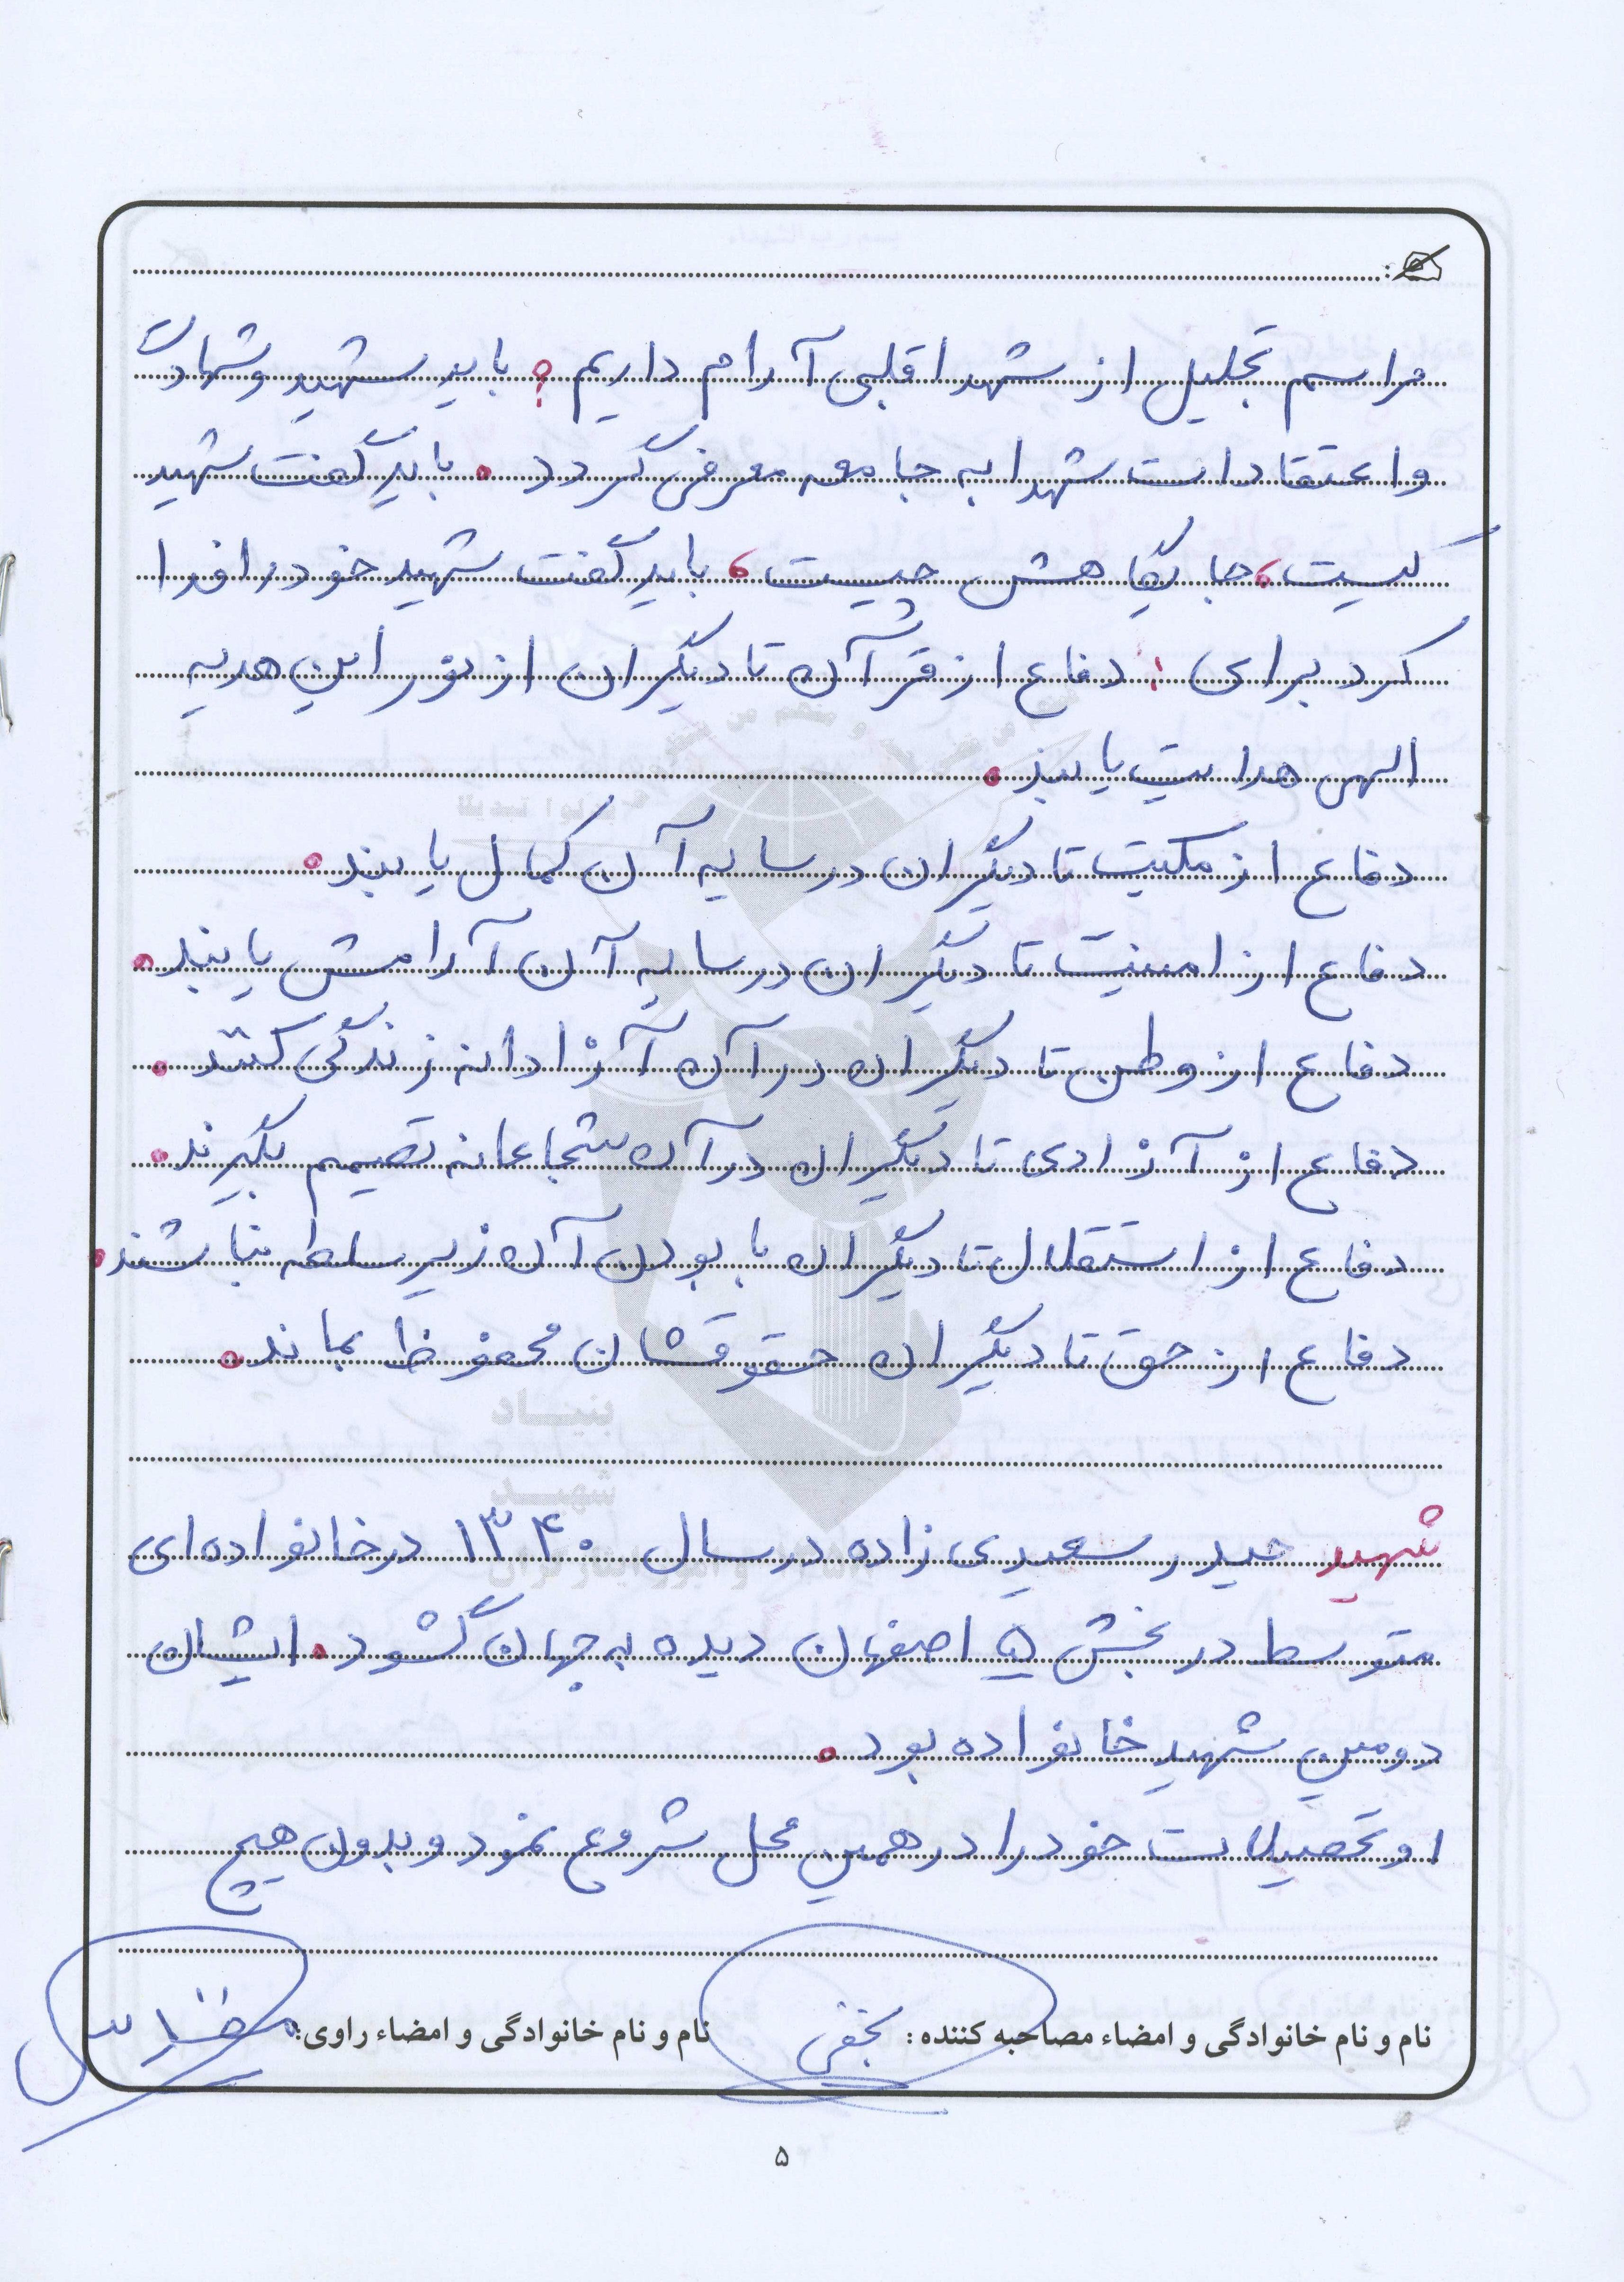 مراسم تجلیل از شهدا قلبی آرام داریم؟ باید شهید و شهادت
و اعتقادات شهدا به جامعه معرفی گردد. باید گفت شهید
کیست، جایگاهش چیست، باید گفت شهید خود را فدا
کرد برای: دفاع از قرآن تا دیگران از نور این هدیه
الهی هدایت یابند.
دفاع از مکتب تا دیگران در سایه آن کمال یابند.
دفاع از امنیت تا دیگران در سایه آن آرامش یابند.
دفاع از وطن تا دیگران در آن آزادانه زندگی کنند.
دفاع از آزادی تا دیگران در آن شجاعانه تصمیم بگیرند.
دفاع از استقلال تا دیگران با بودن آن زیر سلطه نباشند.
دفاع از حق تا دیگران حقوقشان محفوظ بماند.
بنیاد
شهید
شهید حیدر سعیدی زاده در سال ۱۳۴۰ در خانواده‌ای
متوسط در بخش ۵ اصفهان دیده به جهان گشود. ایشان
دومین شهید خانواده بود.
او تحصیلات خود را در همین محل شروع نمود و بدون هیچ
نام و نام خانوادگی و امضاء مصاحبه کننده: نجفی نام و نام خانوادگی و امضاء راوی:
۵